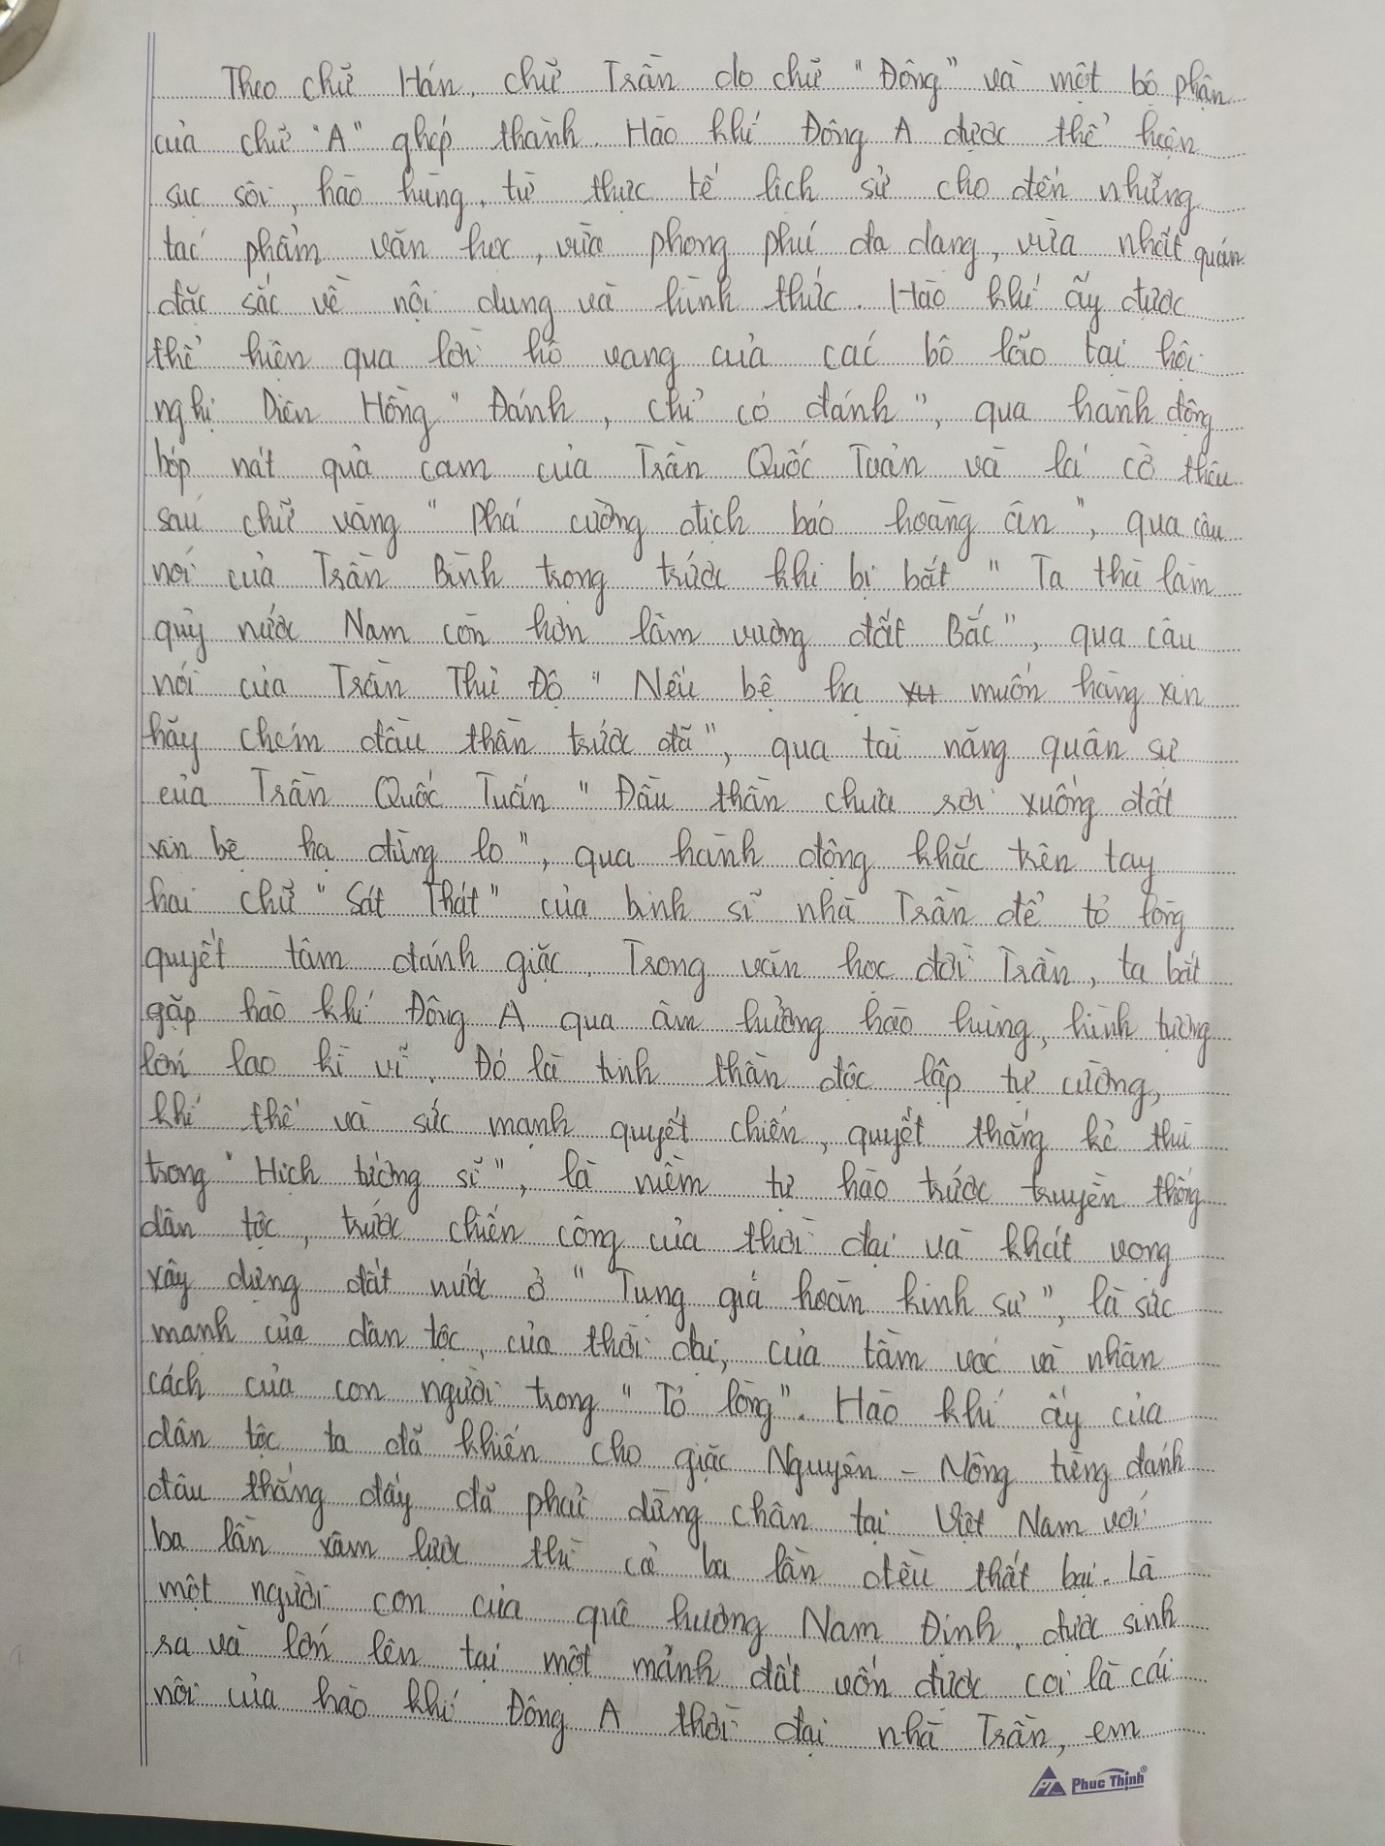 Theo chữ Hán, chữ Trần do chữ "Đông" và một bộ phận
của chữ "A" ghép thành. Hào khí Đông A được thể hiện
sục sôi, hào hùng, từ thực tế lịch sử cho đến những
tác phẩm văn học, vừa phong phú đa dạng, vừa nhất quán
đặc sắc về nội dung và hình thức. Hào khí ấy được
thể hiện qua lời hô vang của các bô lão tại hội
nghị Diên Hồng "Đánh, chỉ có đánh", qua hành động
bóp nát quả cam của Trần Quốc Toản và lá cờ thêu
sáu chữ vàng "Phá cường địch báo hoàng ân", qua câu
nói của Trần Bình trọng trước khi bị bắt "Ta thà làm
quỷ nước Nam còn hơn làm vương đất Bắc", qua câu
nói của Trần Thủ Độ "Nếu bệ hạ muốn hàng xin
hãy chém đầu thần trước đã", qua tài năng quân sự
của Trần Quốc Tuấn "Đầu thần chưa rơi xuống đất
xin bệ hạ đừng lo", qua hành động khắc trên tay
hai chữ "Sát Thát" của binh sĩ nhà Trần để tỏ lòng
quyết tâm đánh giặc. Trong văn học đời Trần, ta bắt
gặp hào khí Đông A qua âm hưởng hào hùng, hình tượng
lớn lao kì vĩ. Đó là tinh thần độc lập tự cường,
khí thế và sức mạnh quyết chiến, quyết thắng kẻ thù
trong "Hịch tướng sĩ", là niềm tự hào trước truyền thống
dân tộc, trước chiến công của thời đại và khát vọng
xây dựng đất nước ở "Tụng giá hoàn kinh sư", là sức
mạnh của dân tộc, của thời đại, của tầm vóc và nhân
cách của con người trong "Tỏ lòng". Hào khí ấy của
dân tộc ta đã khiến cho giặc Nguyên - Mông tiếng đánh
đâu thắng đấy đã phải dừng chân tại Việt Nam với
ba lần xâm lược thì cả ba lần đều thất bại. Là
một người con của quê hương Nam Định, được sinh
ra và lớn lên tại một mảnh đất vốn được coi là cái
nôi của hào khí Đông A thời đại nhà Trần, em
Phuc Thịnh